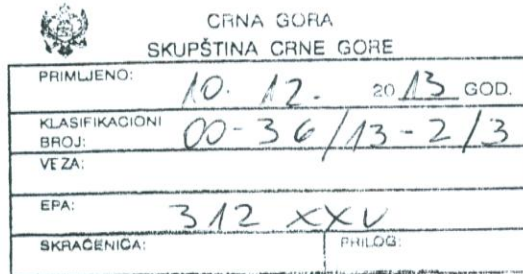 CRNA GORA
SKUPŠTINA CRNE GORE
PRIMLJENO: 10. 12. 2013 GOD.
KLASIFIKACIONI BROJ: 00-36/13-2/3
VEZA:
EPA: 312 XXV
SKRAĆENICA: PRILOG: